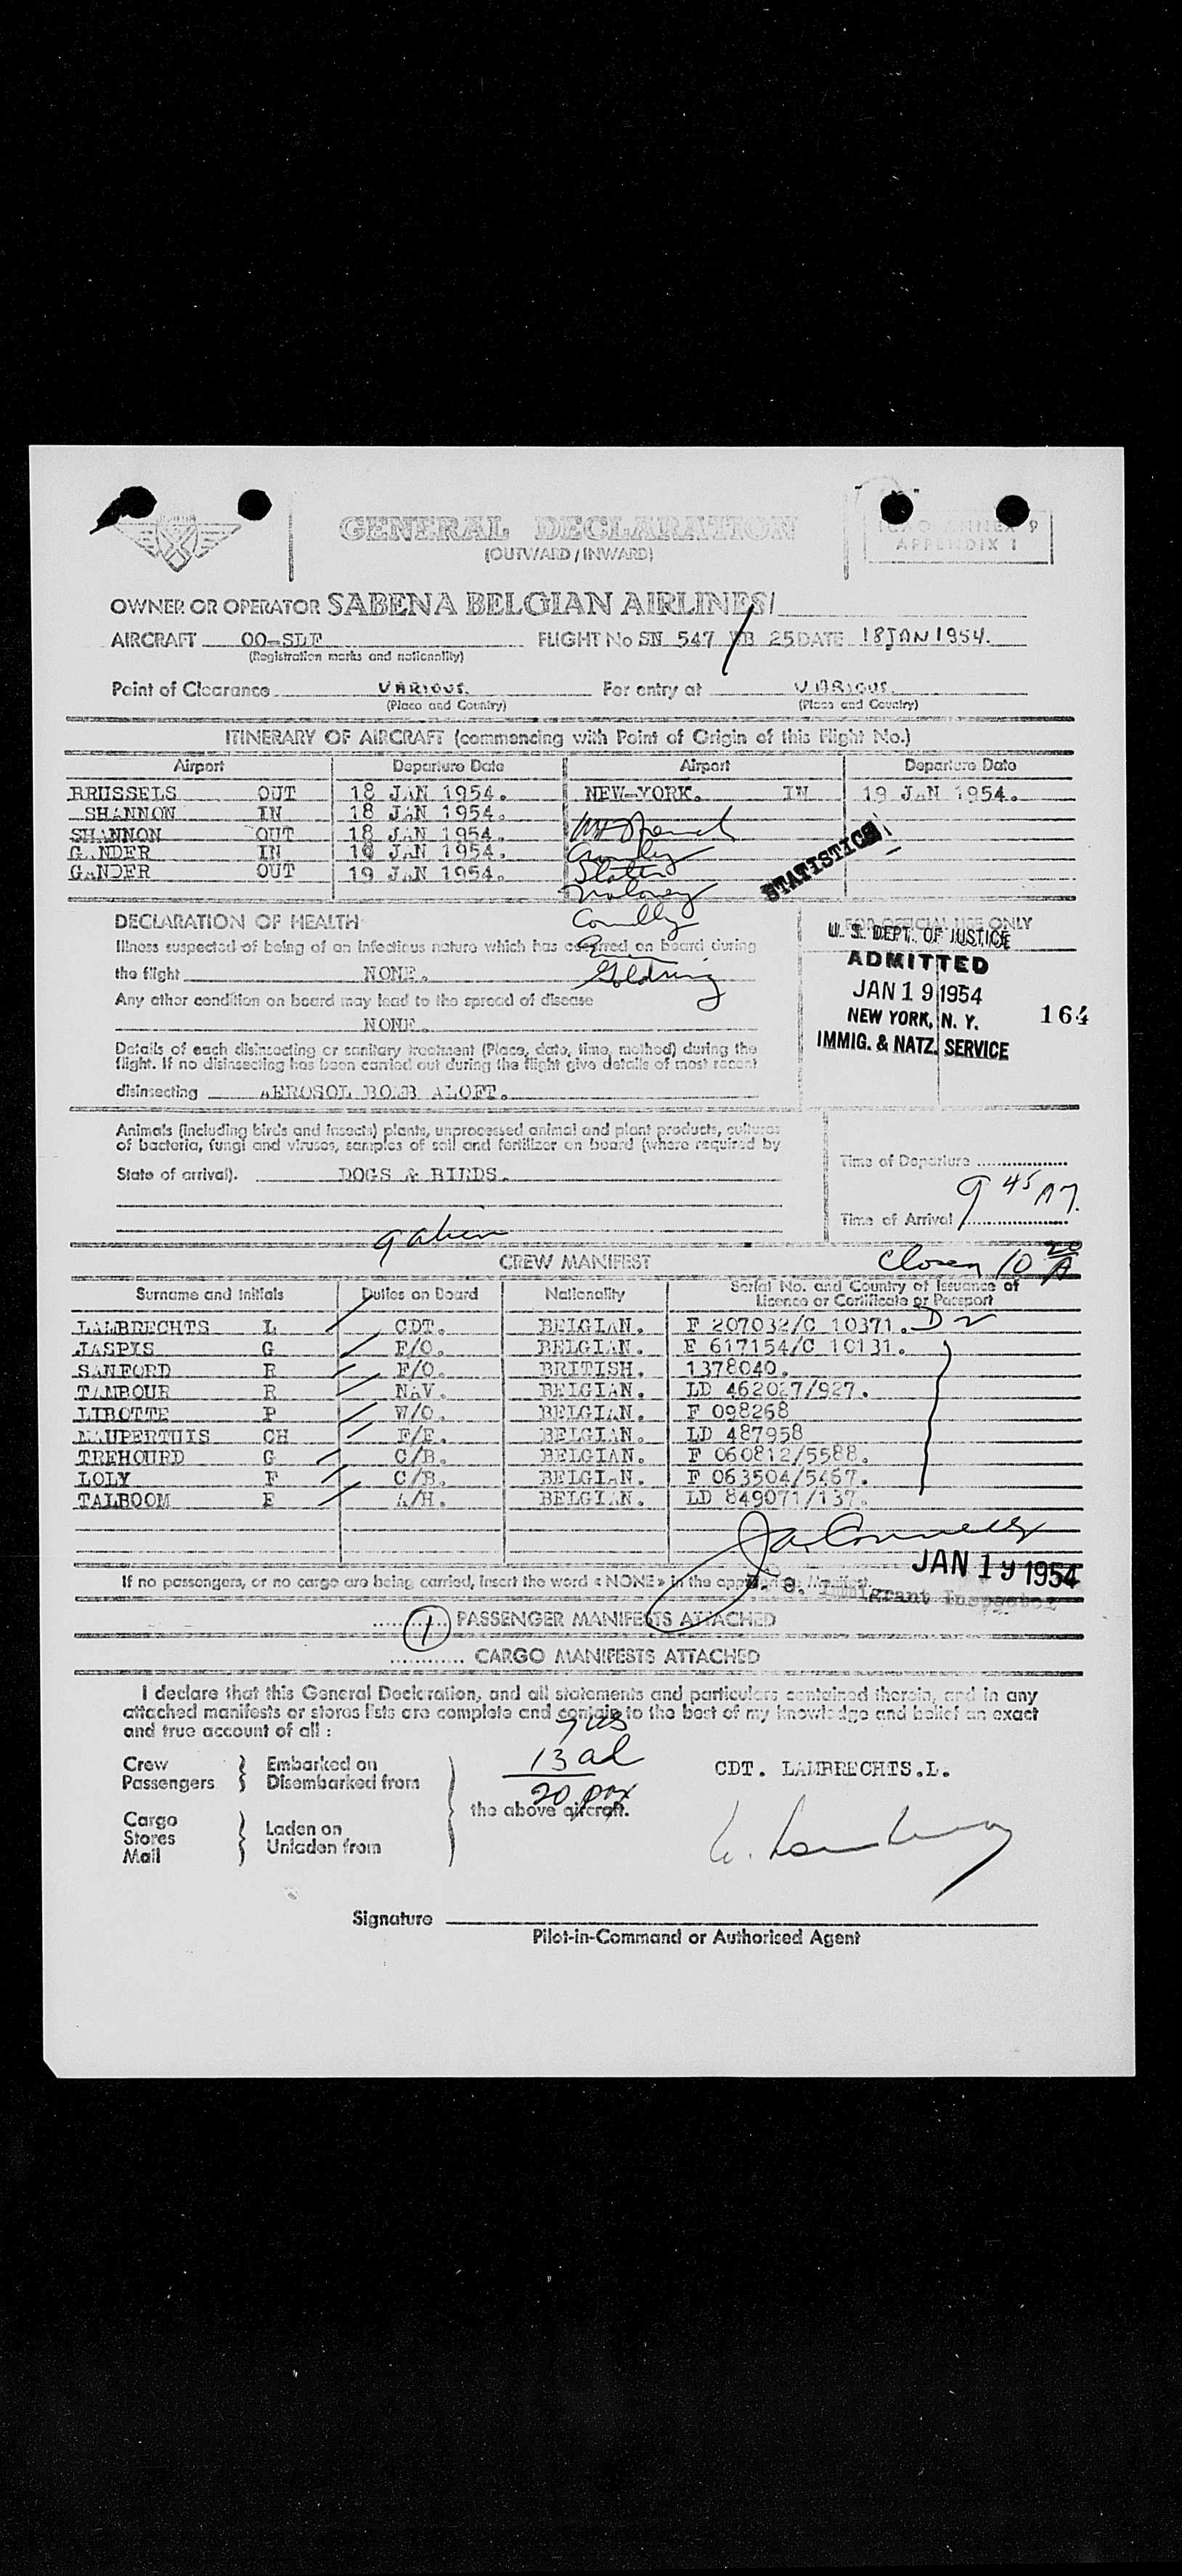 GENERAL DECLARATION
(OUTWARD/INWARD)
ANNEX 9
APPENDIX 1
OWNER OR OPERATOR SABENA BELGIAN AIRLINES/
AIRCRAFT OO-SDF FLIGHT No SN 547 25 DATE 18 JAN 1954.
(Registration marks and nationality)
Point of Clearance VARIOUS. For entry at VARIOUS.
(Place and Country) (Place and Country)
ITINERARY OF AIRCRAFT (commencing with Point of Origin of this Flight No.)
Airport Departure Date Airport Departure Date
BRUSSELS OUT 18 JAN 1954. NEW-YORK. IN 19 JAN 1954.
SHANNON IN 18 JAN 1954.
SHANNON OUT 18 JAN 1954.
GANDER IN 19 JAN 1954.
GANDER OUT 19 JAN 1954.
Slater
Maloney
Connolly
Goldring
STATISTICS
DECLARATION OF HEALTH
Illness suspected of being of an infectious nature which has occurred on board during
the flight NONE.
Any other condition on board may lead to the spread of disease
NONE.
Details of each disinsecting or sanitary treatment (Place, date, time, method) during the
flight. If no disinsecting has been carried out during the flight give details of most recent
disinsecting AEROSOL BOMB ALOFT.
FOR OFFICIAL USE ONLY
U. S. DEPT. OF JUSTICE
ADMITTED
JAN 19 1954
NEW YORK, N. Y.
IMMIG. & NATZ. SERVICE
164
Animals (including birds and insects) plants, unprocessed animal and plant products, cultures
of bacteria, fungi and viruses, samples of soil and fertilizer on board (where required by
State of arrival). DOGS & BIRDS.
Time of Departure
9 45 AM.
Time of Arrival
9 alien
CREW MANIFEST
Closed 10 20 A
Surname and Initials Duties on Board Nationality Serial No. and Country of Issuance of
Licence or Certificate or Passport
LAMBRECHTS L CDT. BELGIAN. F 207032/C 10371.
JASPIS G F/O. BELGIAN. E 617154/C 10131.
SANFORD R F/O. BRITISH. 1378040.
TAMBOUR R NAV. BELGIAN. LD 462027/927.
LIBOTTE P W/O. BELGIAN. F 098268
MAUPERTUIS CH F/E. BELGIAN. LD 487958
TREHOURD G C/B. BELGIAN. F 060812/5588.
LOLY F C/B. BELGIAN. F 063504/5467.
TALBOOM E A/H. BELGIAN. LD 849071/137.
JAN 19 1954
If no passengers, or no cargo are being carried, insert the word « NONE » in the
U. S. Immigrant Inspector
1 PASSENGER MANIFESTS ATTACHED
CARGO MANIFESTS ATTACHED
I declare that this General Declaration, and all statements and particulars contained therein, and in any
attached manifests or stores lists are complete and contain to the best of my knowledge and belief an exact
and true account of all :
7 US
13 al
20 pax
Crew Embarked on
Passengers Disembarked from
the above aircraft.
Cargo
Stores Laden on
Mail Unladen from
CDT. LAMBRECHTS.L.
Signature
Pilot-in-Command or Authorised Agent